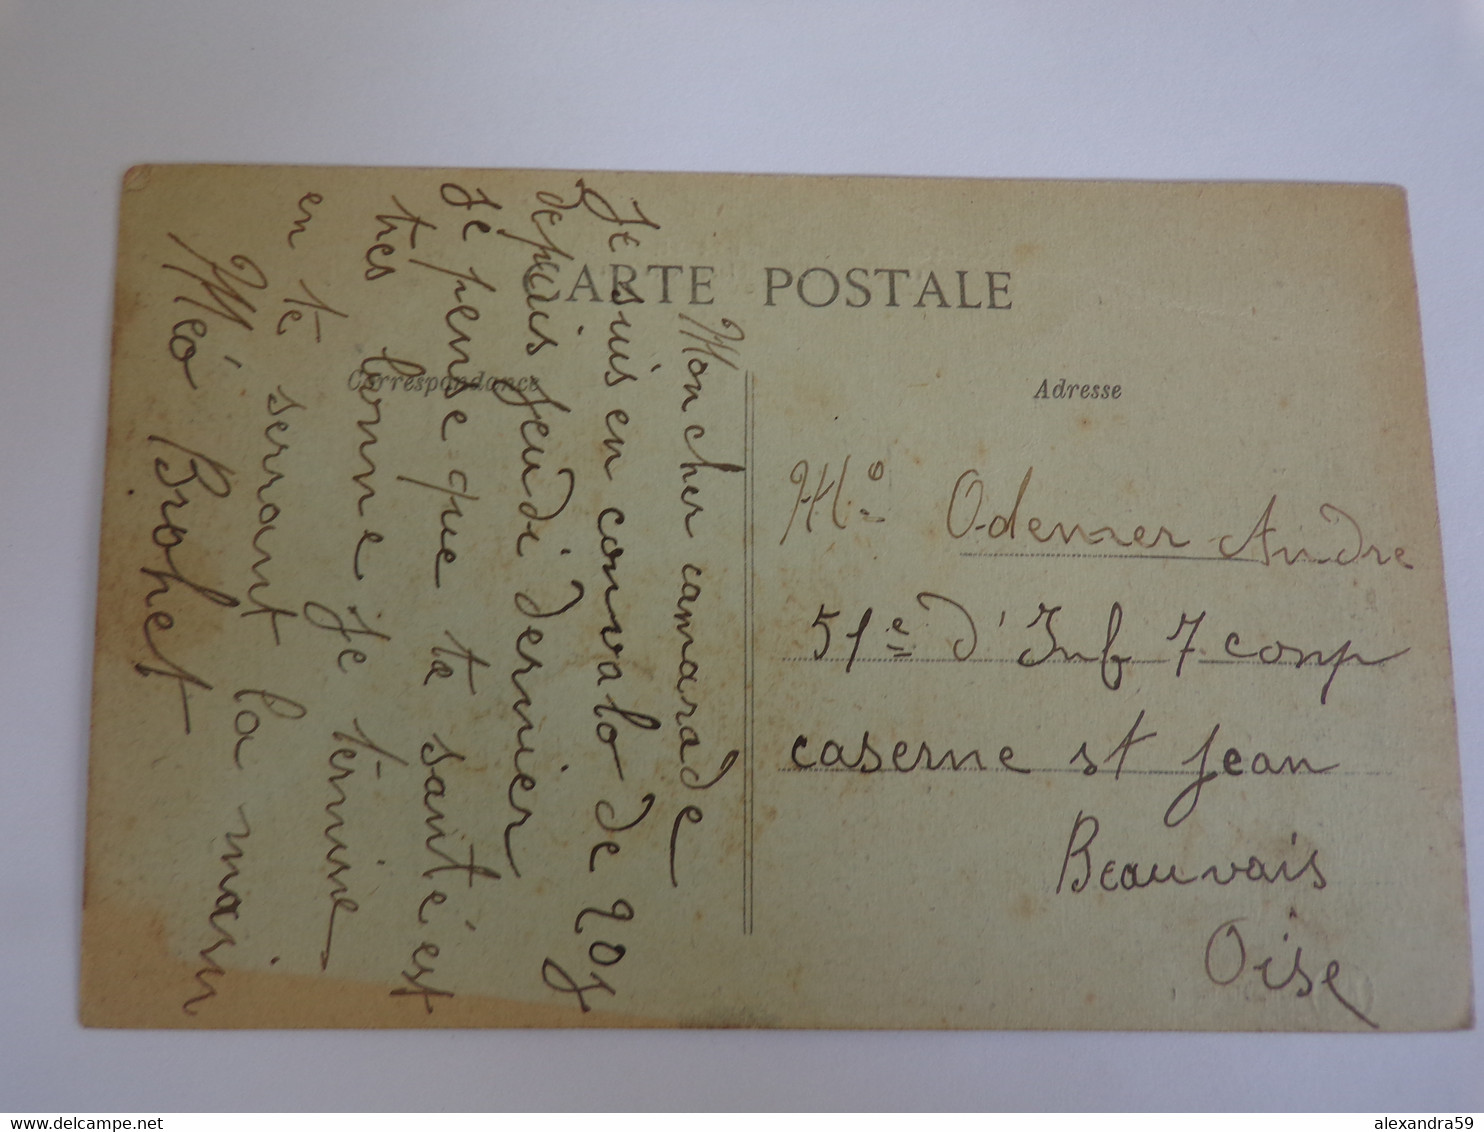 CARTE POSTALE
Correspondance
Adresse
Mon cher camarade
Je suis en convalo de 20j
depuis jeudi dernier
Je pense que ta santé est
tres bonne je termine
en te serrant la main
Méo Brohet
Mo. Odemer Andre
51e d'Inf 7 comp
caserne st Jean
Beauvais
Oise
alexandra59